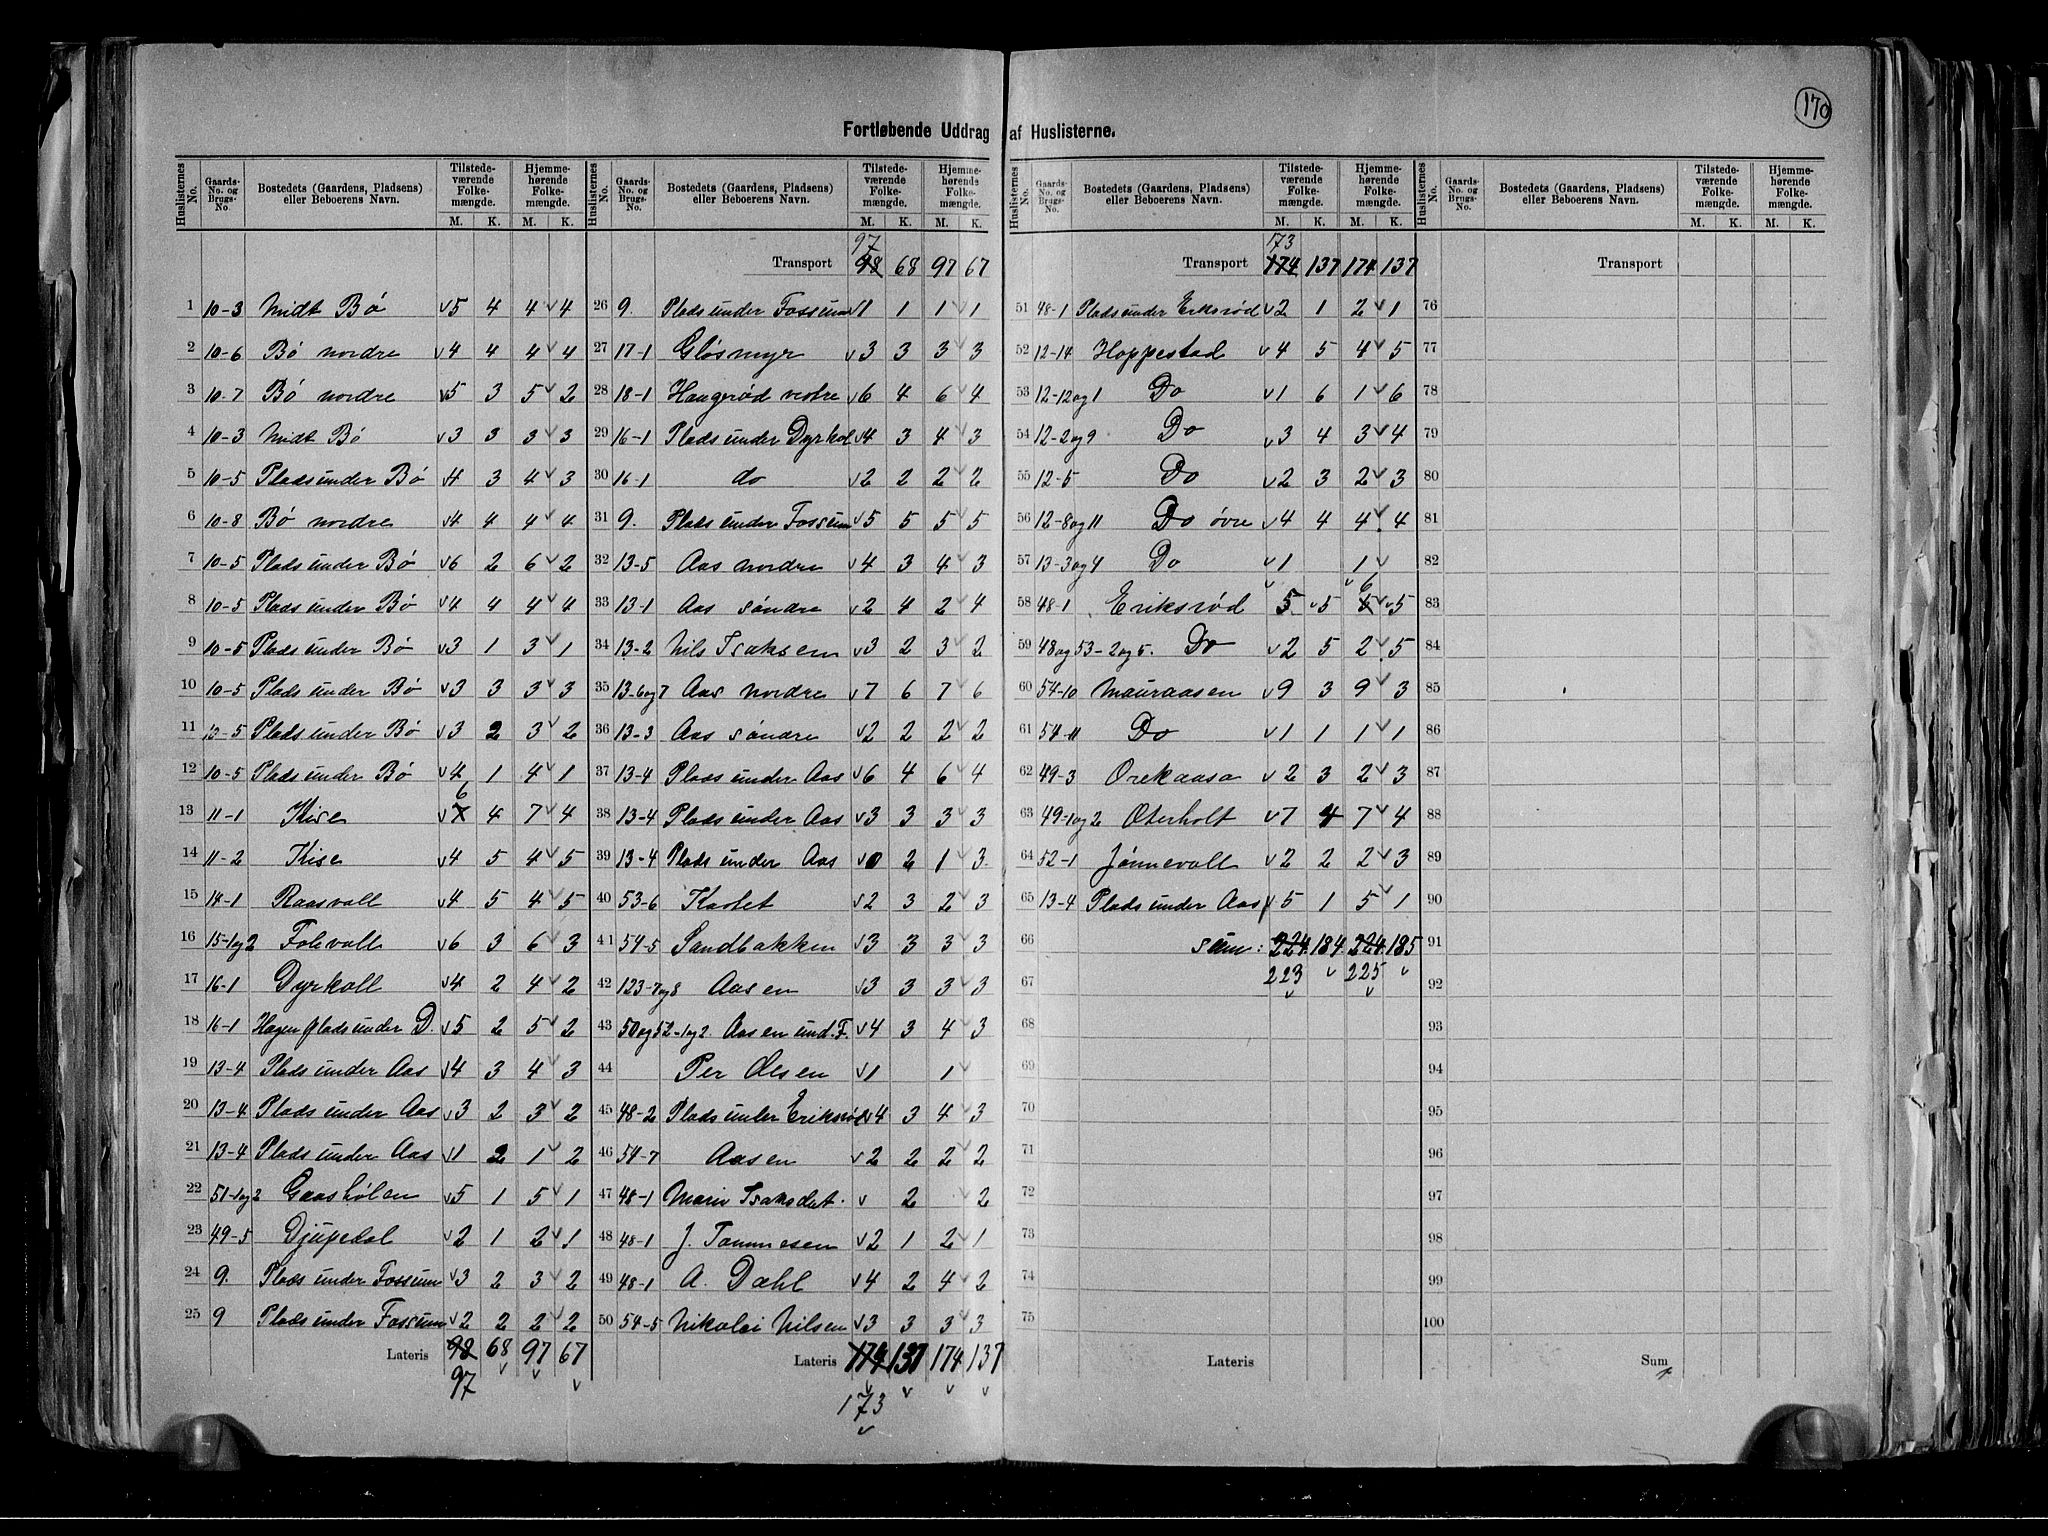 170
Fortløbende Uddrag af Huslisterne.
Huslisternes No. Gaards-No. og Brugs-No. Bostedets (Gaardens, Pladsens) eller Beboerens Navn. Tilstedeværende Folkemængde. M. K. Hjemmehørende Folkemængde. M. K.
1 10-3 Midt Bø v5 4 4 v 4
2 10-6 Bø nordre v4 4 4 v 4
3 10-7 Bø nordre v5 3 5 v 2
4 10-3 Midt Bø v3 3 3 v 3
5 10-5 Plads under Bø v4 3 4 v 3
6 10-8 Bø nordre v4 4 4 v 4
7 10-5 Plads under Bø v6 2 6 v 2
8 10-5 Plads under Bø v4 4 4 v 4
9 10-5 Plads under Bø v3 1 3 v 1
10 10-5 Plads under Bø v3 3 3 v 3
11 10-5 Plads under Bø v3 2 3 v 2
12 10-5 Plads under Bø v4 1 4 v 1
6
13 11-1 Kise v7 4 7 v 4
14 11-2 Kise v4 5 4 v 5
15 14-1 Raasvall v4 5 4 v 5
16 15-1og2 Folivall v6 3 6 v 3
17 16-1 Dyrkoll v4 2 4 v 2
18 16-1 Hagen plads under D. v5 2 5 v 2
19 13-4 Plads under Aas v4 3 4 v 3
20 13-4 Plads under Aas v3 2 3 v 2
21 13-4 Plads under Aas v1 2 1 v 2
22 51-1og2 Gaashølen v5 1 5 v 1
23 49-5 Djupedal v2 1 2 v 1
24 9. Plads under Fossum v3 2 3 v 2
25 9 Plads under Fossum v2 2 2 v 2
Lateris 98 68 97 67
97 v v v
Huslisternes No. Gaards-No. og Brugs-No. Bostedets (Gaardens, Pladsens) eller Beboerens Navn. Tilstedeværende Folkemængde. M. K. Hjemmehørende Folkemængde. M. K.
97
Transport 98 68 97 67
26 9. Plads under Fossum v1 1 1 v 1
27 17-1 Gløsmyr v3 3 3 v 3
28 18-1 Haugerød vestre v6 4 6 v 4
29 16-1 Plads under Dyrkol v4 3 4 v 3
30 16-1 do v2 2 2 v 2
31 9. Plads under Fossum v5 5 5 v 5
32 13-5 Aas nordre v4 3 4 v 3
33 13-1 Aas søndre v2 4 2 v 4
34 13-2 Nils Isaksen v3 2 3 v 2
35 13-6og7 Aas nordre v7 6 7 v 6
36 13-3 Aas søndre v2 2 2 v 2
37 13-4 Plads under Aas v6 4 6 v 4
38 13-4 Plads under Aas v3 3 3 v 3
39 13-4 Plads under Aas v0 2 1 v 3
40 53-6 Kastet v2 3 2 v 3
41 54-5 Sandbakken v3 3 3 v 3
42 123-7og8 Aasen v3 3 3 v 3
43 50og52-1og2. Aasen und. F. v4 3 4 v 3
44 Per Olsen v1 1 v
45 48-2 Plads under Eriksrød v4 3 4 v 3
46 54-7 Aasen v2 2 2 v 2
47 48-1 Marie Isaksdat. v 2 v 2
48 48-1 J. Tommesen v2 1 2 v 1
49 48-1 A. Dahl v4 2 4 v 2
50 54-5 Nikolai Nilsen v3 3 3 v 3
Lateris 174 137 174 137
v v v v
173
v
Huslisternes No. Gaards-No. og Brugs-No. Bostedets (Gaardens, Pladsens) eller Beboerens Navn. Tilstedeværende Folkemængde. M. K. Hjemmehørende Folkemængde. M. K.
173
Transport 174 137 174 137
51 48-1 Plads under Eriksrød v2 1 2 v 1
52 12-14 Hoppestad v4 5 4 v 5
53 12-12og1 Do v1 6 1 v 6
54 12-2og9 Do v3 4 3 v 4
55 12-5 Do v2 3 2 v 3
56 12-8og11 Do øvre v4 4 4 v 4
57 13-3og4 Do v1 1 v
v v 6
58 48-1 Eriksrød 5 v5 5 v 5
59 48og53-2og5. Do v2 5 2 v 5
60 54-10 Mauraasen v9 3 9 v 3
61 54-11 Do v1 1 1 v 1
62 49-3 Orekaasa v2 3 2 v 3
63 49-1og2 Oterholt v7 4 7 v 4
64 52-1 Jønnevall v2 2 2 v 3
65 13-4 Plads under Aas v5 1 5 v 1
66 Sum: 224 184 224 185
67 223 v 225 v
v v
68
69
70
71
72
73
74
75
Lateris
Huslisternes No. Gaards-No. og Brugs-No. Bostedets (Gaardens, Pladsens) eller Beboerens Navn. Tilstedeværende Folkemængde. M. K. Hjemmehørende Folkemængde. M. K.
Transport
76
77
78
79
80
81
82
83
84
85
86
87
88
89
90
91
92
93
94
95
96
97
98
99
100
Sum